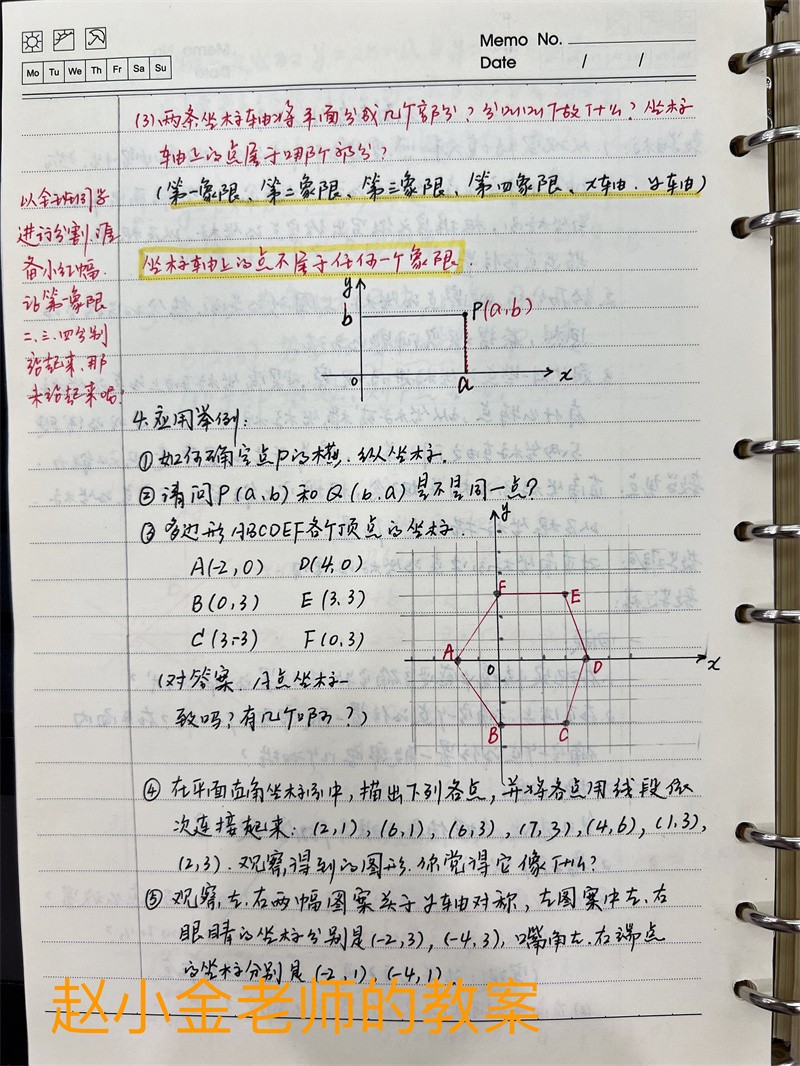 Memo No.
Mo Tu We Th Fr Sa Su
Date / /
(3)两条坐标轴将平面分成几个部分?分别叫做什么?坐标
轴上的点属于哪个部分?
(第一象限、第二象限、第三象限、第四象限、x轴、y轴)
坐标轴上的点不属于任何一个象限.
以金
进行分割,准
备小红帽.
站第一象限
二、三、四分别
站起来,那
未站起来呢
y
b
P(a,b)
0
a
x
4.应用举例:
①如何确定点P的横、纵坐标.
②请问P(a,b)和Q(b,a)是不是同一点?
③多边形ABCDEF各个顶点的坐标.
A(-2,0) D(4,0)
B(0,3) E(3,3)
C(3,-3) F(0,3)
(对答案,A点坐标一
致吗?有几个啊?)
y
F
E
A
0
D
x
B
C
④在平面直角坐标系中,描出下列各点,并将各点用线段依
次连接起来:(2,1),(6,1),(6,3),(7,3),(4,6),(1,3),
(2,3).观察得到的图形.你觉得它像什么?
⑤观察,左、右两幅图案关于y轴对称,左图案中左、右
眼睛的坐标分别是(-2,3),(-4,3),嘴角左、右端点
的坐标分别是(-2,1),(-4,1)
赵小金老师的教案